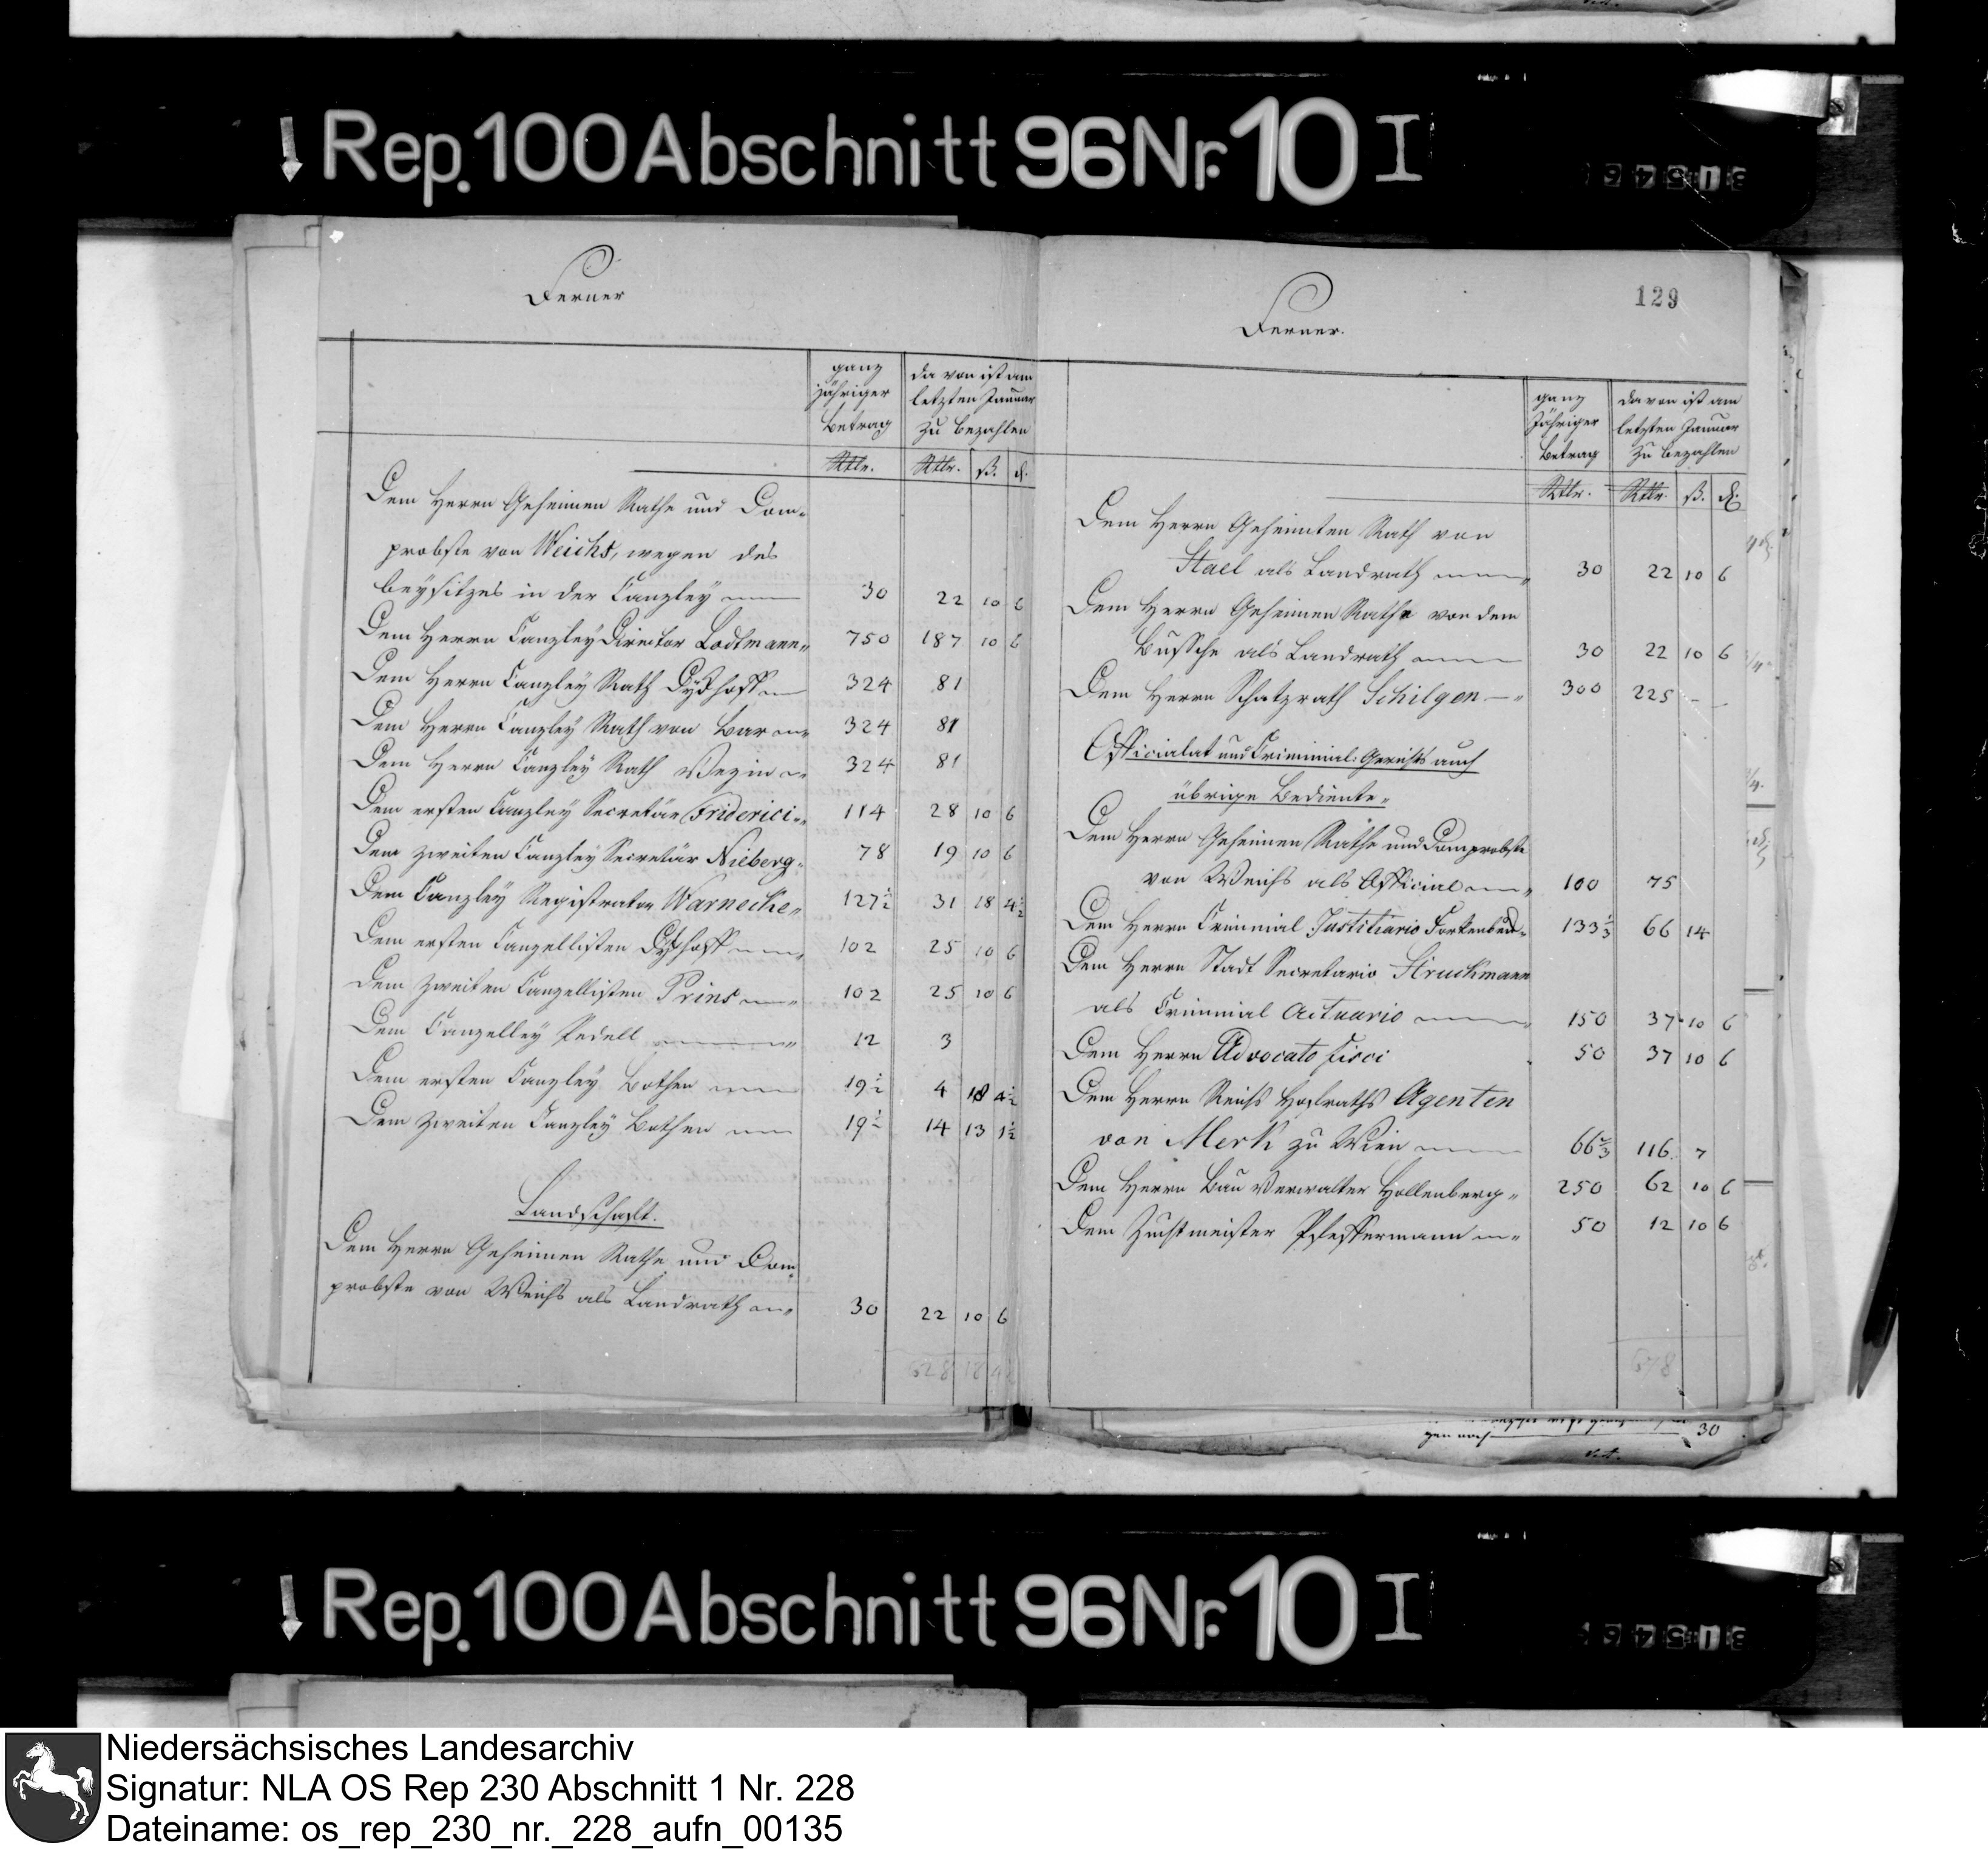 Rep. 100 Abschnitt 96 Nr. 10 I
Ferner
ganz
jähriger
Betrag
da von ist am
letzten Januar
zu bezahlen
Rtlr. Rtlr. ß. d.
Dem Herrn Geheimen Rathe und Dom-
probste von Weichs, wegen des
beysitzes in der Canzley 30 22 10 6
Dem Herrn Canzley Director Lodtmann 750 187 10 6
Dem Herrn Canzley Rath Dyckhoff 324 81
Dem Herrn Canzley Rath von Bar 324 81
Dem Herrn Canzley Rath Vezin 324 81
Dem ersten Canzley Secretär Friderici 114 28 10 6
Dem zweiten Canzley Secretär Nieberg 78 19 10 6
Dem Canzley Registrator Warnecke 127½ 31 18 4½
Dem ersten Canzellisten Dyckhoff 102 25 10 6
Dem zweiten Canzellisten Prins 102 25 10 6
Dem Canzelley Pedell 12 3
Dem ersten Canzley Bothen 19½ 4 18 4½
Dem zweiten Canzley Bothen 19½ 14 13 1½
Landschaft.
Dem Herrn Geheimen Rathe und Dom
probste von Weichs als Landrath 30 22 10 6
528 12
129
Ferner.
ganz
Jähriger
Betrag
davon ist am
letzten Januar
zu bezahlen
Rtlr. Rtlr. ß. d.
Dem Herrn Geheimten Rath von
Stael als Landrath 30 22 10 6
Dem Herrn Geheimen Rathe von dem
Bussche als Landrath 30 22 10 6
Dem Herrn Schatzrath Schilgen 300 225 - -
Officialat und Criminal-Gerichts auch
übrige Bediente
Dem Herrn Geheimen Rathe und Domprobste
von Weichs als Official 100 75
Dem Herrn Criminal Justitiario 133⅓ 66 14
Dem Herrn Stadt Secretario Struckmann
als Criminal Actuario 150 37 10 6
Dem Herrn Advocato fisci 50 37 10 6
Dem Herrn Reichs Hofraths Agenten
von Merk zu Wien 66⅔ 116 7
Dem Herrn Bau Verwalter Hollenberg 250 62 10 6
Dem Zuchtmeister Pfeffermann 50 12 10 6
678
30
Rep. 100 Abschnitt 96 Nr. 10 I
Niedersächsisches Landesarchiv
Signatur: NLA OS Rep 230 Abschnitt 1 Nr. 228
Dateiname: os_rep_230_nr._228_aufn_00135